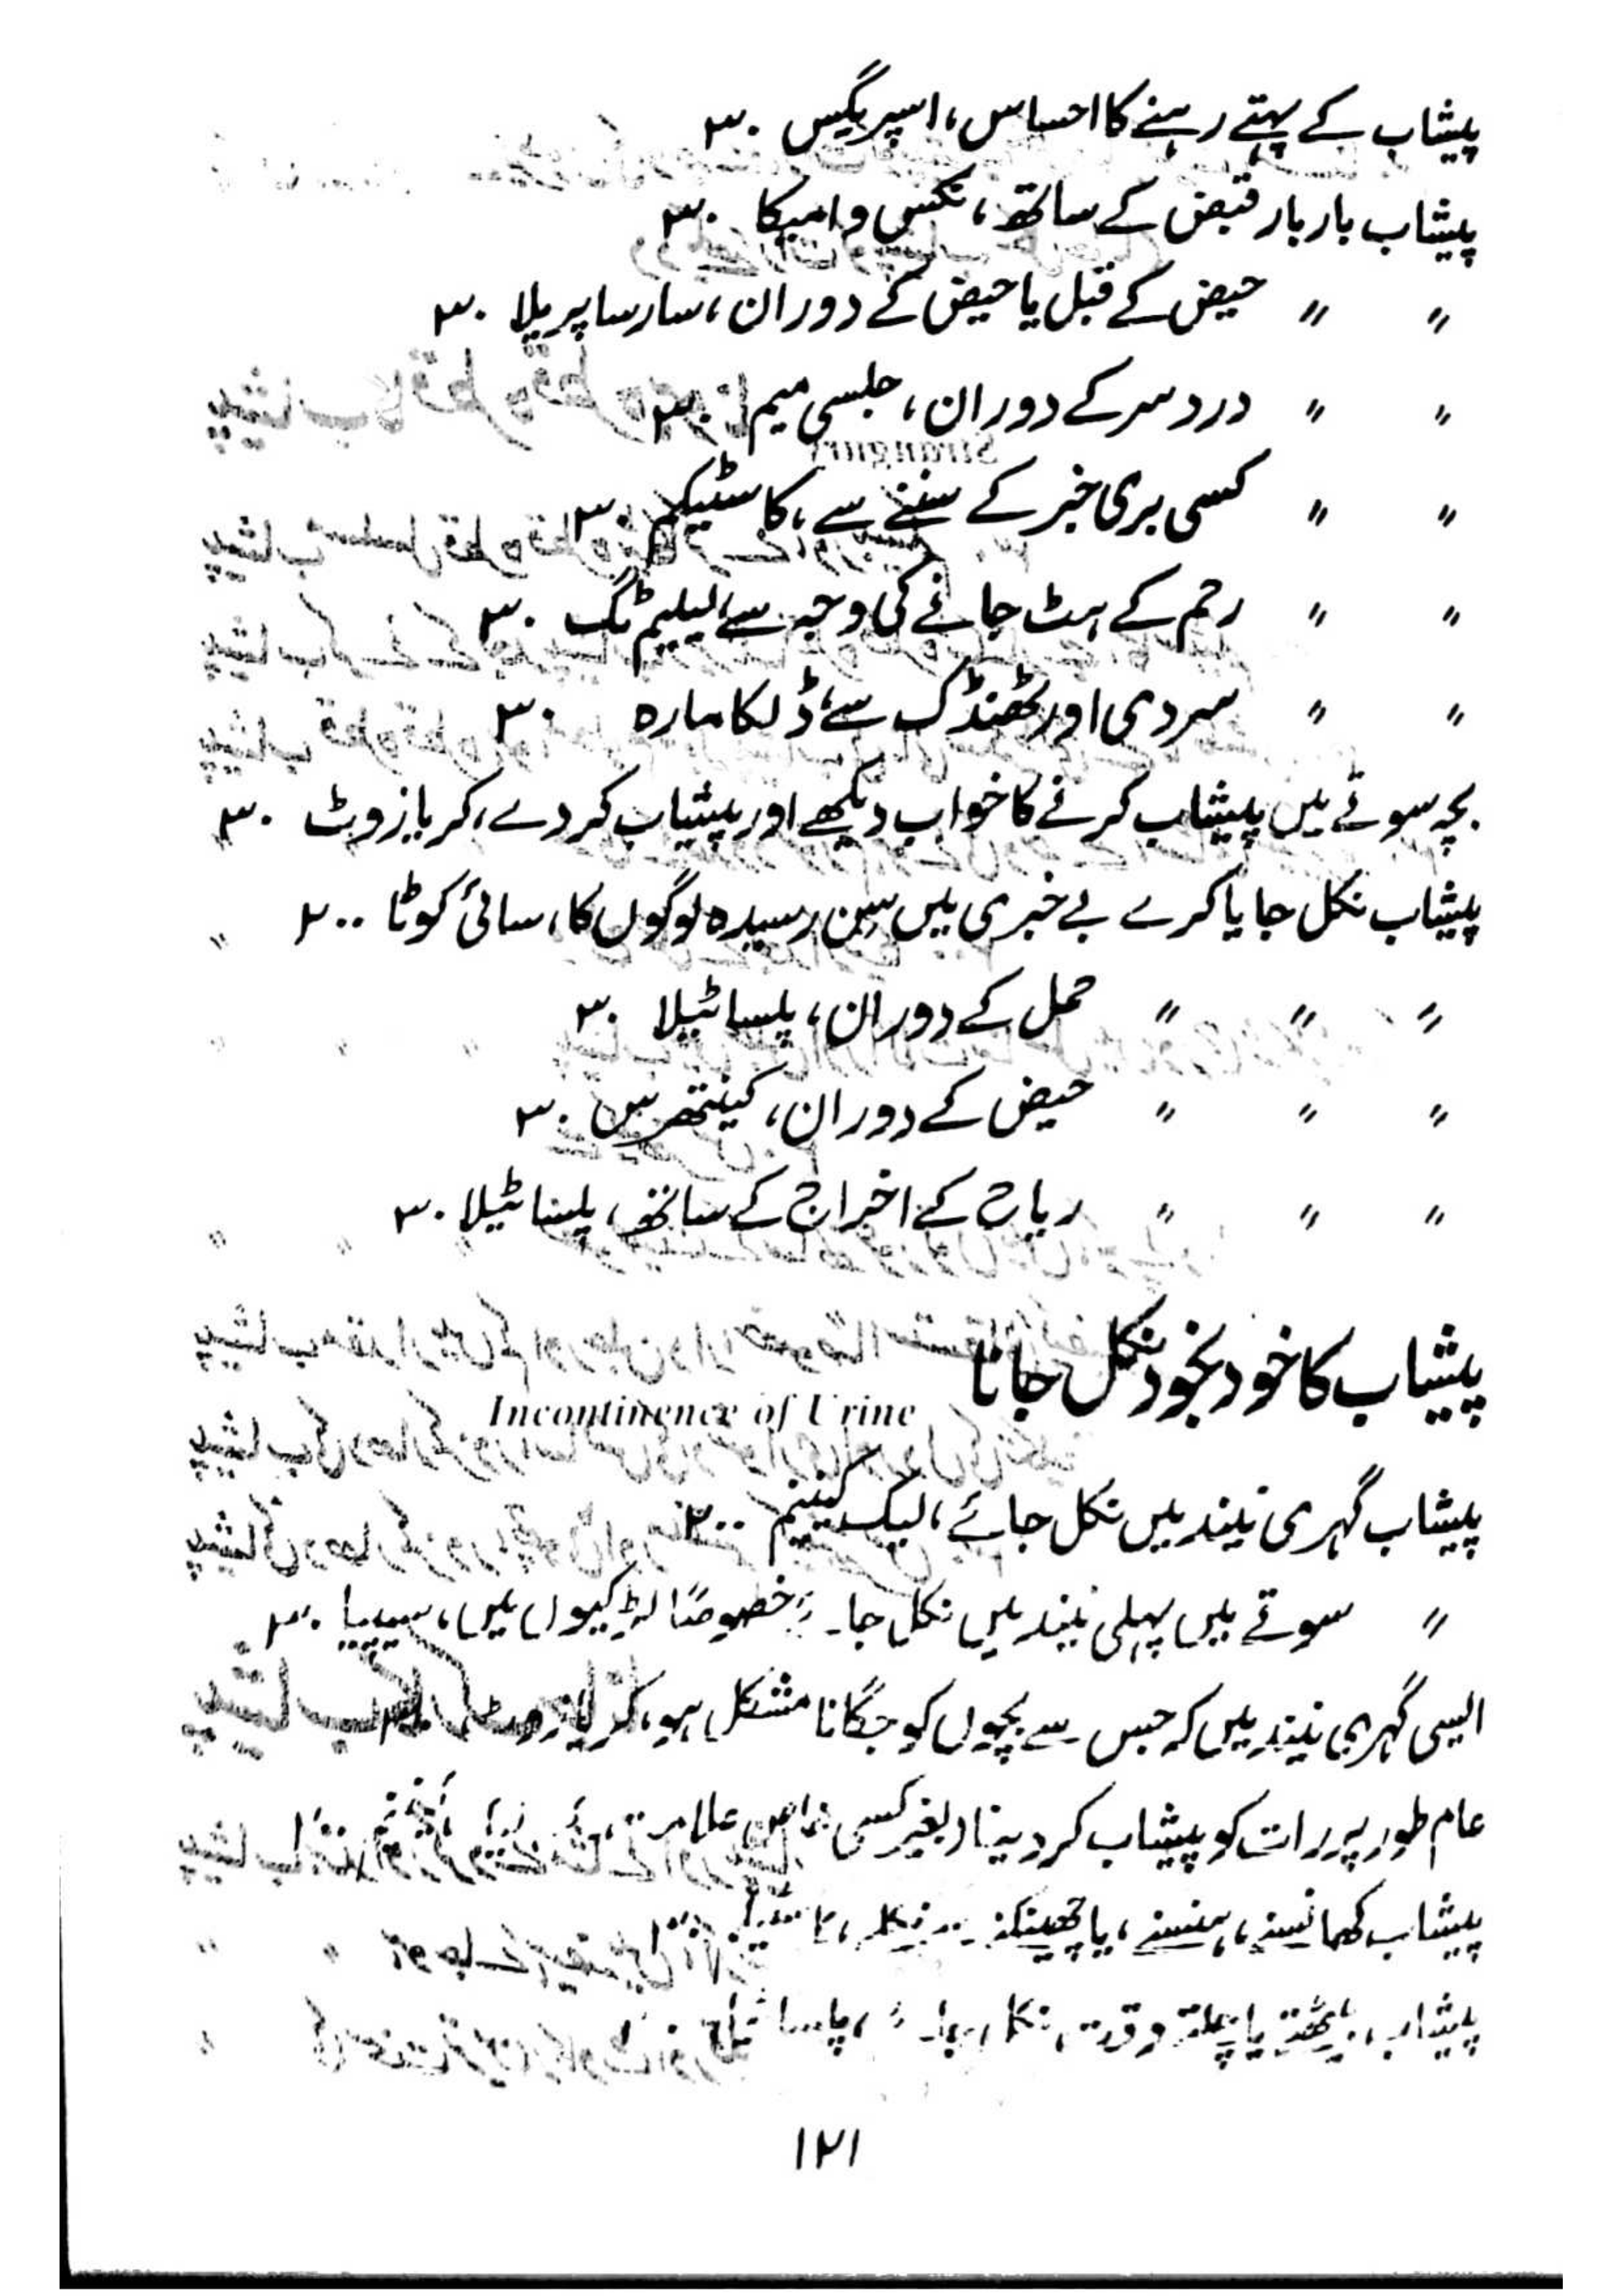 پیشاب کے بہتے رہنے کا احساس، اسپریگیس ۳۰
پیشاب بار بار قبض کے ساتھ، نکس وامیکا ۳۰
" " حیض کے قبل یا حیض کے دوران، سارساپریلا ۳۰
" " درد سر کے دوران، جلسی میم ۳۰
" " کسی بری خبر کے سننے سے، کاسٹیکم ۳۰
" " رحم کے ہٹ جانے کی وجہ سے، لیلیم ٹگ ۳۰
" " سردی اور ٹھنڈک سے، ڈلکامارہ ۳۰
بچہ سوتے میں پیشاب کرنے کا خواب دیکھے اور پیشاب کر دے، کریازوٹ ۳۰
پیشاب نکل جایا کرے بے خبری میں سن رسیدہ لوگوں کا، سائی کوٹا ۲۰۰
" " " حمل کے دوران، پلساٹیلا ۳۰
" " " حیض کے دوران، کینتھرس ۳۰
" " " ریاح کے اخراج کے ساتھ، پلساٹیلا ۳۰
پیشاب کا خود بخود نکل جانا
Incontinence of Urine
پیشاب گہری نیند میں نکل جائے، لیک کینیم ۲۰۰
" سوتے میں پہلی نیند میں نکل جا خصوصاً لڑکیوں میں، سیپیا ۳۰
ایسی گہری نیند میں کہ جس سے بچوں کو جگانا مشکل ہو، کریازوٹ
عام طور پر رات کو پیشاب کر دینا بغیر کسی خاص علامت
پیشاب کھانسنے، ہنسنے، یا چھینکنے
پیشاب بیٹھتے یا چلتے وقت نکل
۱۲۱